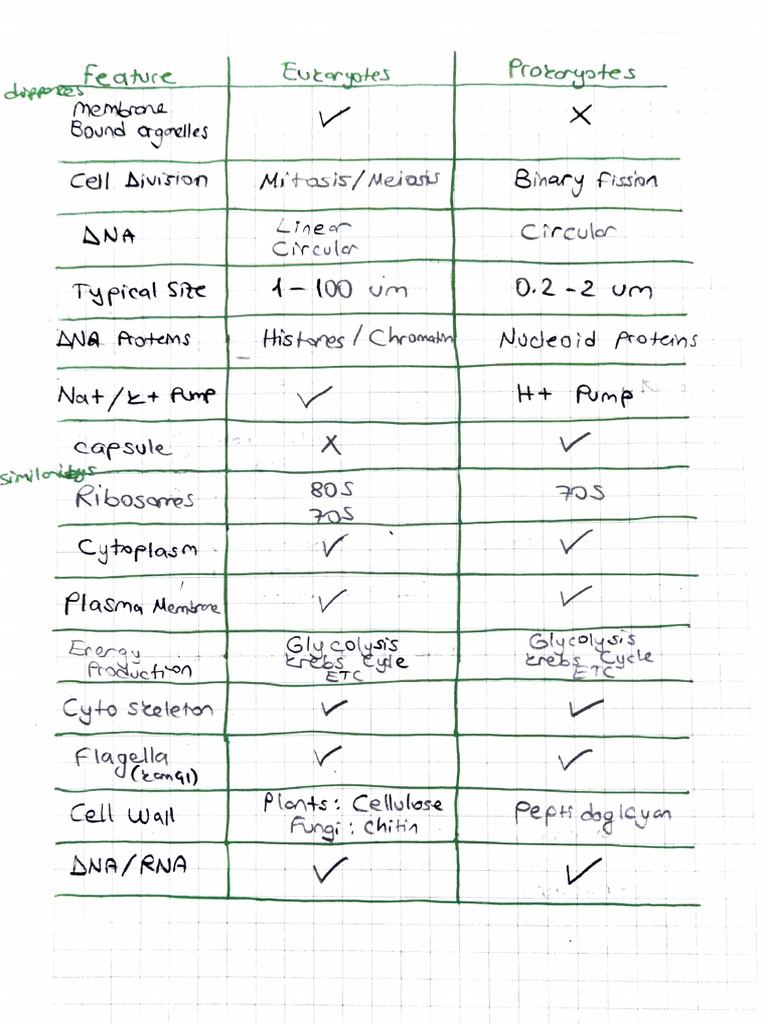 Feature Eukaryotes Prokaryotes
Membrane ✓ X
Bound organelles
Cell Division Mitosis/Meiosis Binary fission
DNA Linear Circular
Circular
Typical Size 1-100 um 0.2-2 um
DNA Proteins Histones/Chromatin Nucleoid Proteins
Na+/K+ Pump ✓ H+ Pump
capsule X ✓
similarities
Ribosomes 80S 70S
70S
Cytoplasm ✓ ✓
Plasma Membrane ✓ ✓
Energy Glycolysis Glycolysis
Production Krebs Cycle Krebs Cycle
ETC ETC
Cyto skeleton ✓ ✓
Flagella ✓ ✓
Cell Wall Plants: Cellulose Peptidoglcyan
Fungi: Chitin
DNA/RNA ✓ ✓